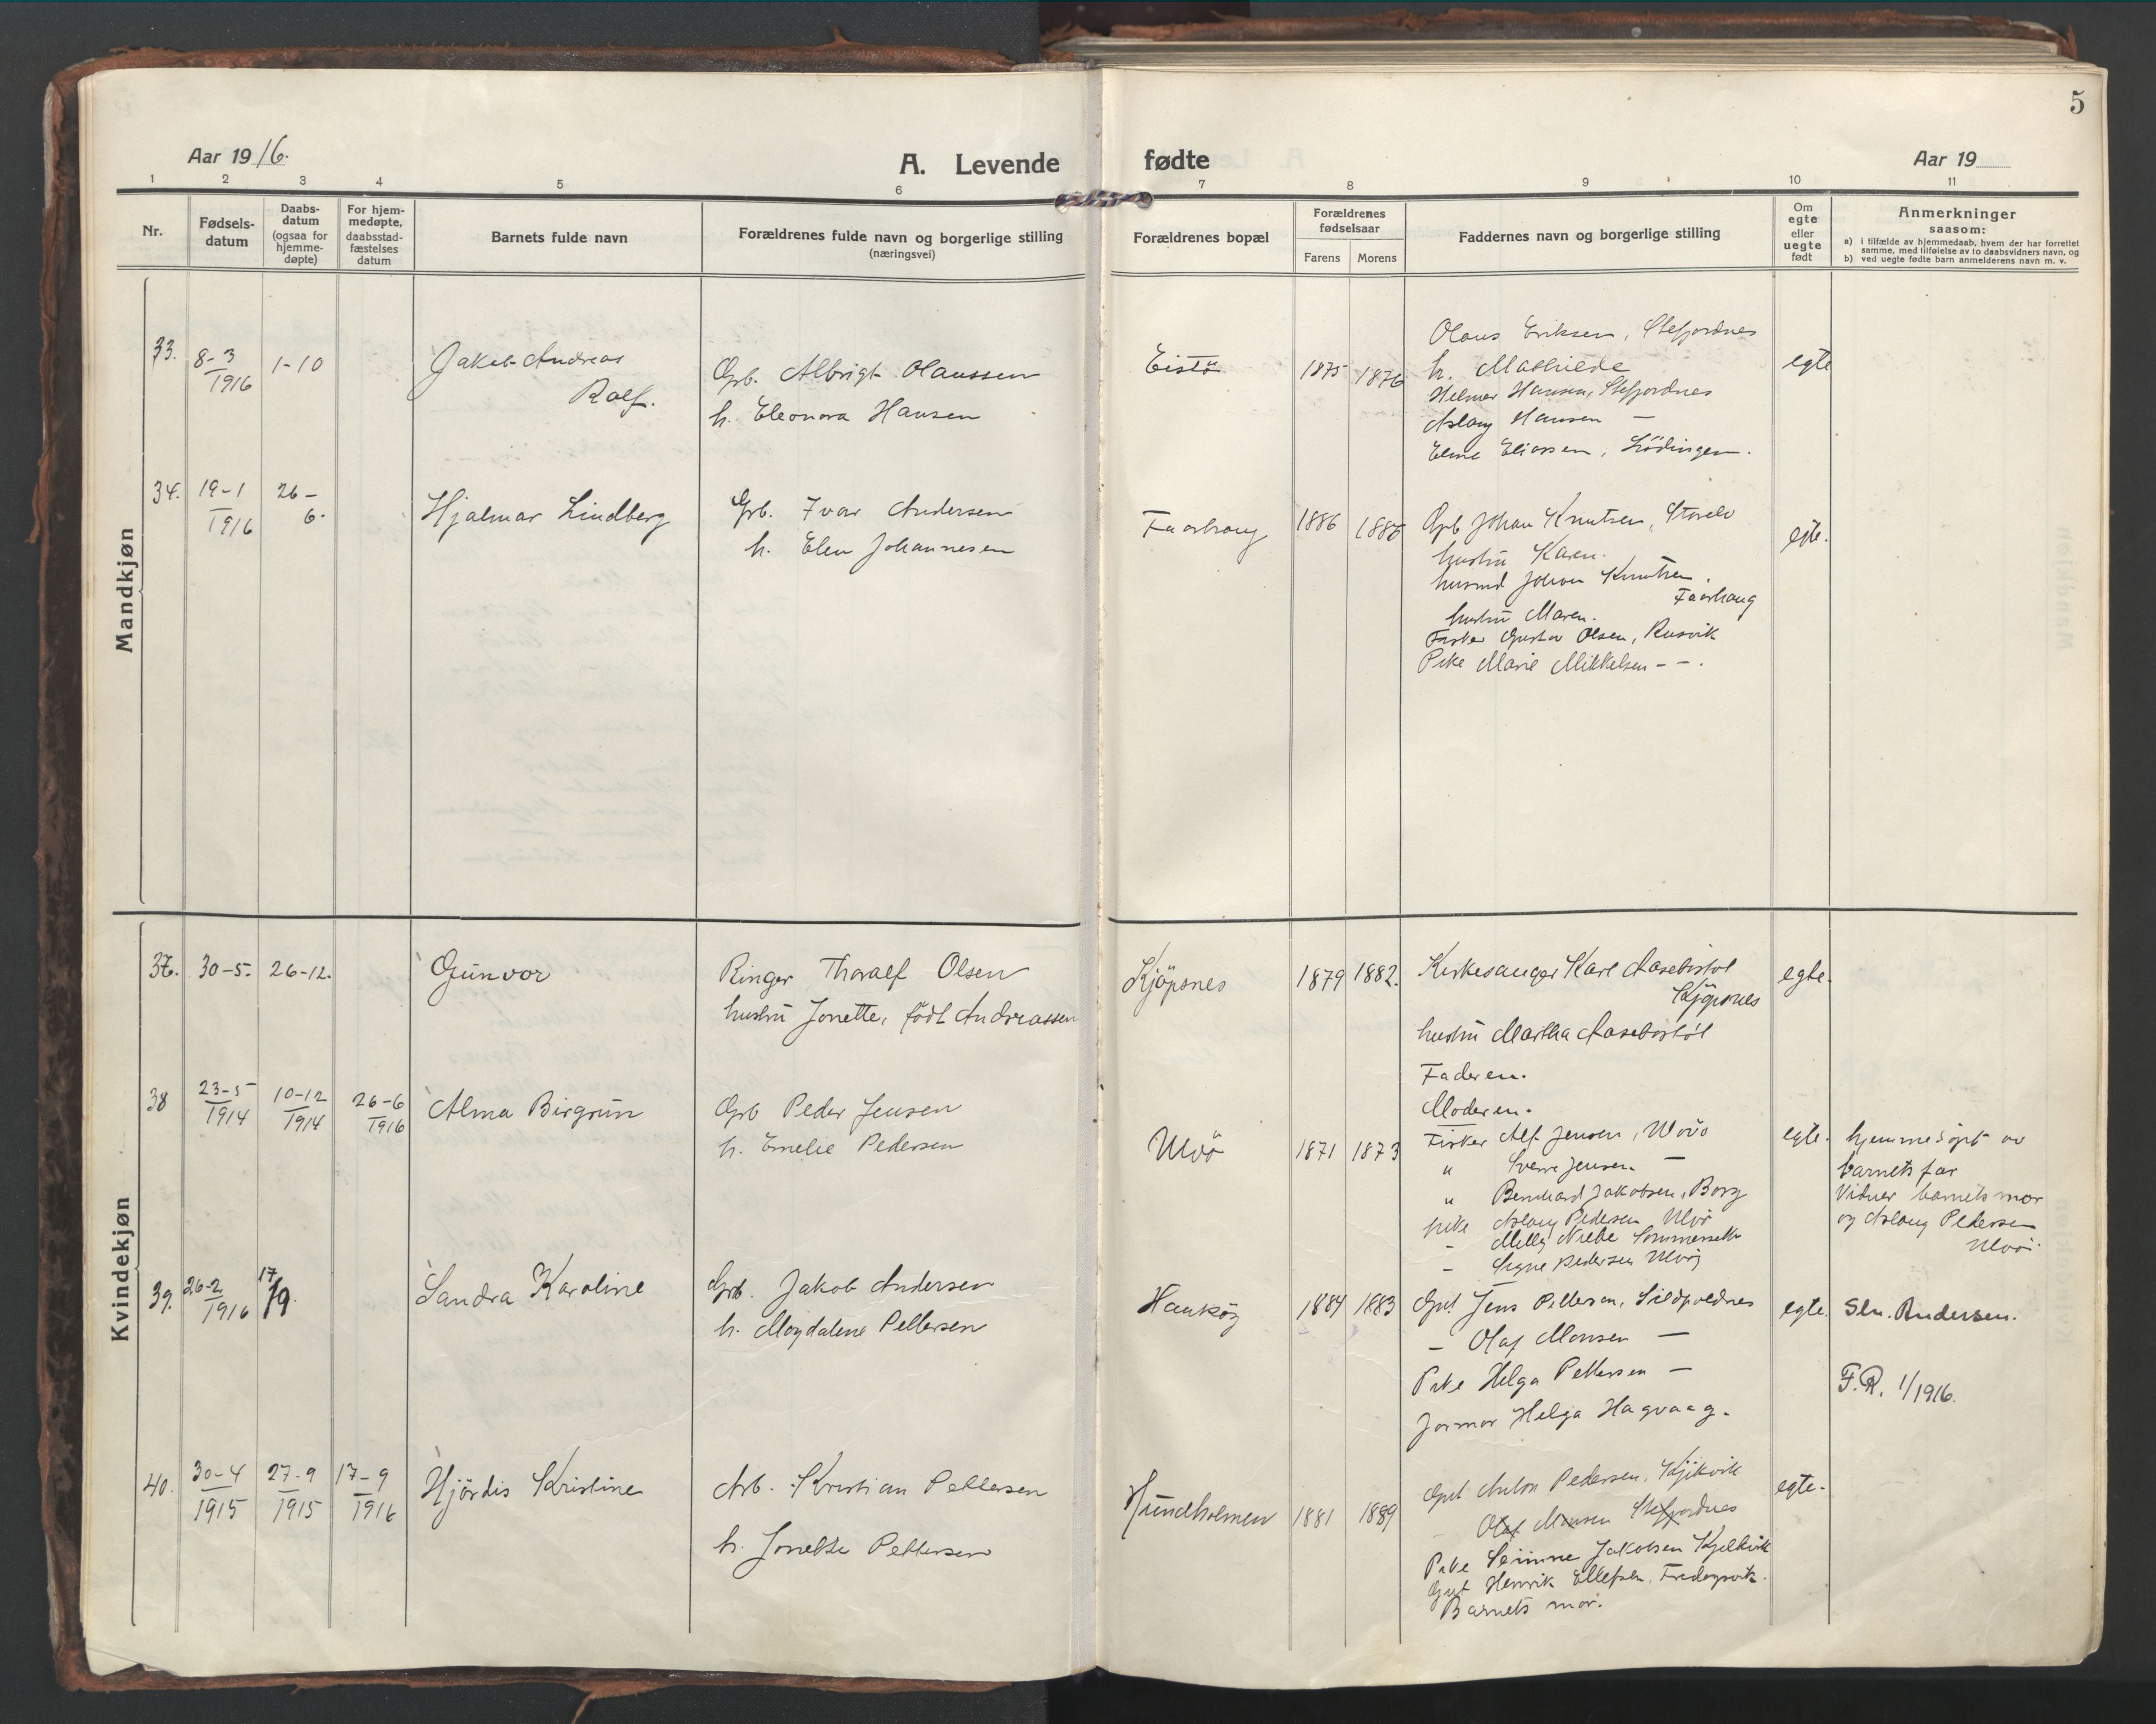 5
Aar 1916.
A. Levende
fødte
Aar 19
1 2 3 4 5 6
7 8 9 10 11
Nr.
Fødsels-
datum
Daabs-
datum
(ogsaa for
hjemme-
døpte)
For hjem-
medøpte,
daabsstad-
fæstelses
datum
Barnets fulde navn
Forældrenes fulde navn og borgerlige stilling
(næringsvei)
Forældrenes bopæl
Forældrenes
fødselsaar
Farens Morens
Faddernes navn og borgerlige stilling
Om
egte
eller
uegte
født
Anmerkninger
saasom:
a) i tilfælde av hjemmedaab, hvem der har forrettet
samme, med tilføielse av to daabsvidners navn, og
b) ved uegte fødte barn anmelderens navn m. v.
Mandkjøn
33.
8-3
1916
1-10
Jakob Andreas
Rolf.
Grb. Albrigt Olaussen
h. Eleonora Hansen
Eistö
1875 1876
Olaus Eriksen, Stefjordnes
h. Mathilde
Helmer Hansen, Stefjordnes
Aslaug Hansen —
Eline Eliassen, Lödingen.
egte
34.
19-1
1916
26-
6.
Hjalmar Lindberg
Grb. Ivar Andersen
h. Elen Johannesen
Faorhaug
1886
Grb Johan Knutsen, Storelv
hustrü Karen.
husmd Johan Knutsen.
Faorhaug
hustrü Maren.
Fisker Gustav Olsen, Rusvik
Pike Marie Mikkelsen - - .
egte.
Kvindekjøn
30-5. 26-12.
Gunvor
Ringer Thoralf Olsen
hustrü Jonette, född Andreassen
Kjöpsnes
1879 1882.
Kirkesanger Karl Aasebøstøl
Kjöpsnes
hustrü Martha Aasebøstøl
Faderen.
Moderen.
egte.
38
23-5
1914
10-12
1914
26-6
1916
Alma Birgrün
Grb Peder Jensen
h. Emelie Pedersen
Ulvö
1871 1873
Fisker Alf Jensen, Ulvö
" Sverre Jensen —
" Bernhard Jakobsen, Borg
pike Aslaug Pedersen Ulvö
- Milly
- Signe Pedersen Ulvö
egte.
hjemmedöpt av
barnets far
Vidner barnets mor
og Aslaug Pedersen
Ulvö
39.
26-2
1916
17/9
Sandra Karoline
Grb. Jakob Andersen
h. Magdalene Pettersen
Haukøy
1884 1883
Gut Jens Pettersen, Sildpoldnes
- Olaf Monsen —
Pike Helga Pettersen —
Jormor Helga Hagvaag.
egte.
Sln. Andersen.
F.R. 1/1916.
40.
30-4
1915
27-9
1915
17-9
1916
Hjördis Kristine
Arb. Kristian Pettersen
h. Jonette Pettersen
Hundholmen
1881 1889
Gut Anton Pedersen, Kjelkvik
- Olaf Monsen Stefjordnes
Pike Jakobsen Kjelkvik
Gut Henrik Ellefsen,
Barnets mor.
egte.